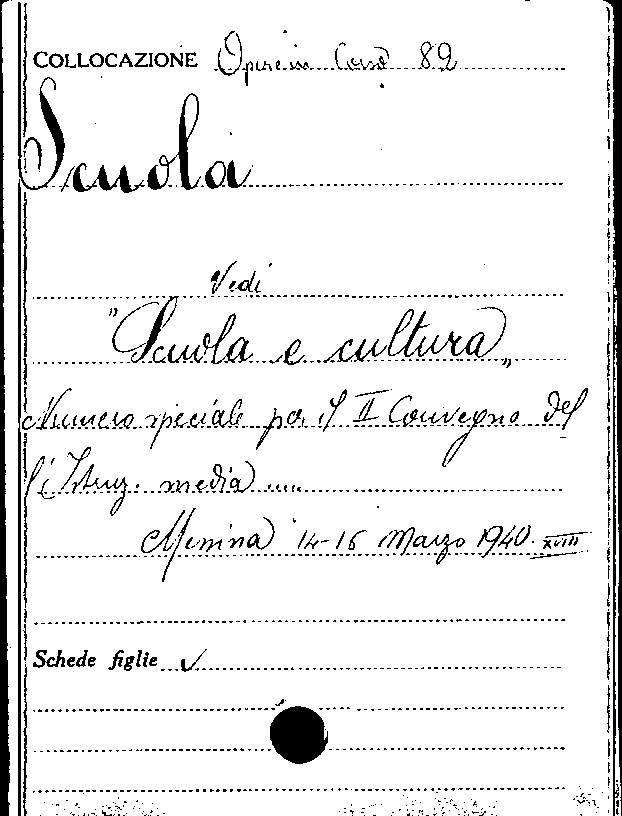 COLLOCAZIONE Opere in Corso 82
Scuola
Vedi
"Scuola e cultura„
Numero speciale per il II Convegno del
l'Istruz. media ....
Messina 14-16 Marzo 1940. XVIII
Schede figlie ✓